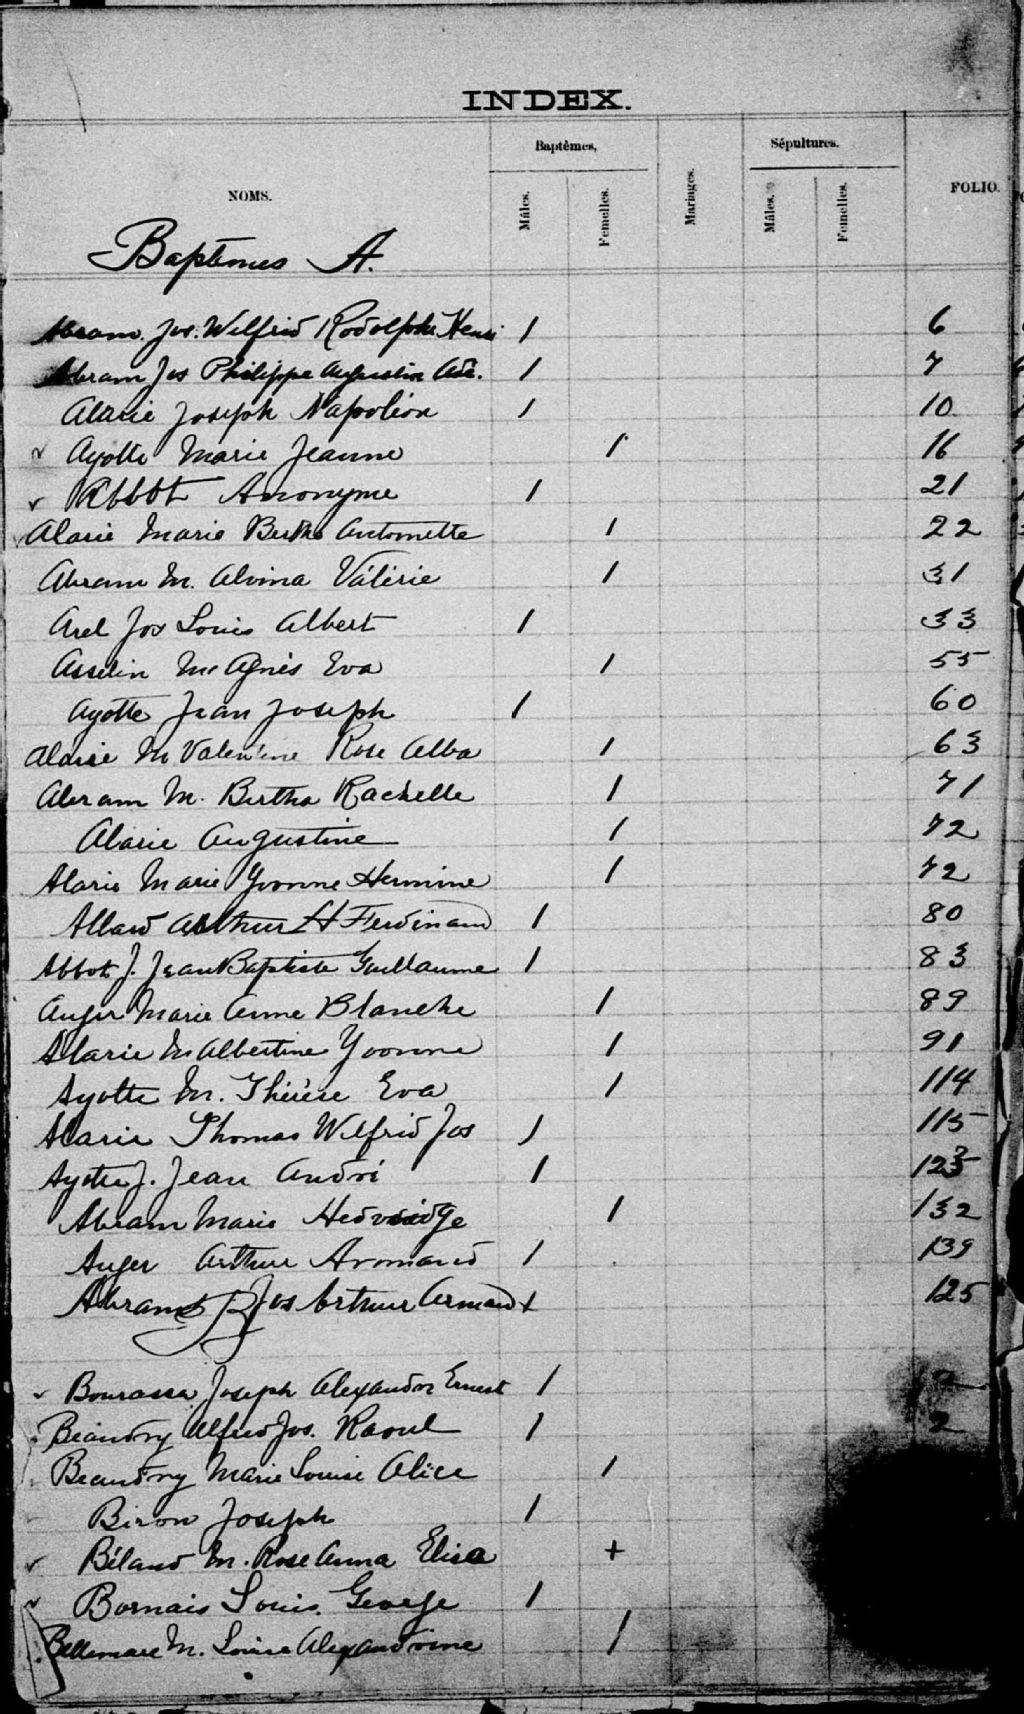 INDEX.
NOMS. Baptêmes, Mâles. Femelles. Mariages. Sépultures. Mâles. Femelles. FOLIO.
Baptêmes A.
Abram. Jos. Wilfrid Rodolphe Henri 1 6
Abram Jos Philippe Augustin 1 7
Alarie Joseph Napoléon 1 10
Ayotte Marie Jeanne 1 16
Abbot Anonyme 1 21
Alarie Marie Berthe Antoinette 1 22
Abram M. Alvina Valérie 1 31
Arel Jos Louis Albert 1 33
Asselin M Agnès Eva 1 55
Ayotte Jean Joseph 1 60
Alarie M Valentine Rose Alba 1 63
Abram M. Bertha Rachelle 1 71
Alarie Augustine 1 72
Alarie Marie Yvonne Hermine 1 72
Allard Arthur H Ferdinand 1 80
Abbot J. Jean Baptiste Guillaume 1 83
Auger Marie Anne Blanche 1 89
Alarie M Albertine Yvonne 1 91
Ayotte M. Thérèse Eva 1 114
Alarie Thomas Wilfrid Jos 1 115
Ayotte J. Jean André 1
Abram Marie Hedvidge 1 132
Auger Arthur Armand 1 139
Abram Jos Arthur Armand 1 125
Bourassa Joseph Alexandre Ernest 1 2
Beaudry Alfred Jos. Raoul 1 2
Beaudry Marie Louise Alice 1
Biron Joseph 1
Béland M. Rose Anna Elisa +
Bornais Louis. George 1
Bellemare M. Louise Alexandrine 1